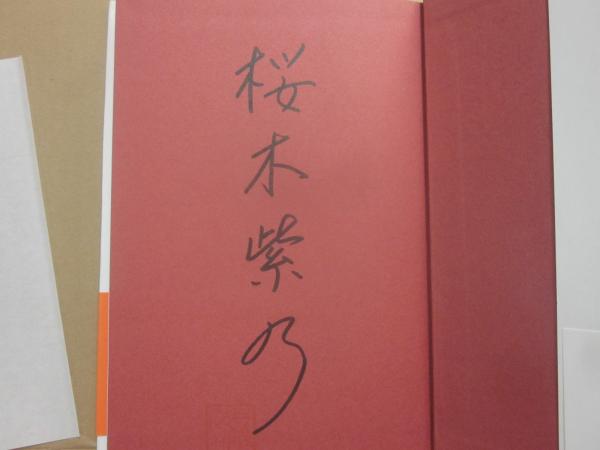 桜木紫乃